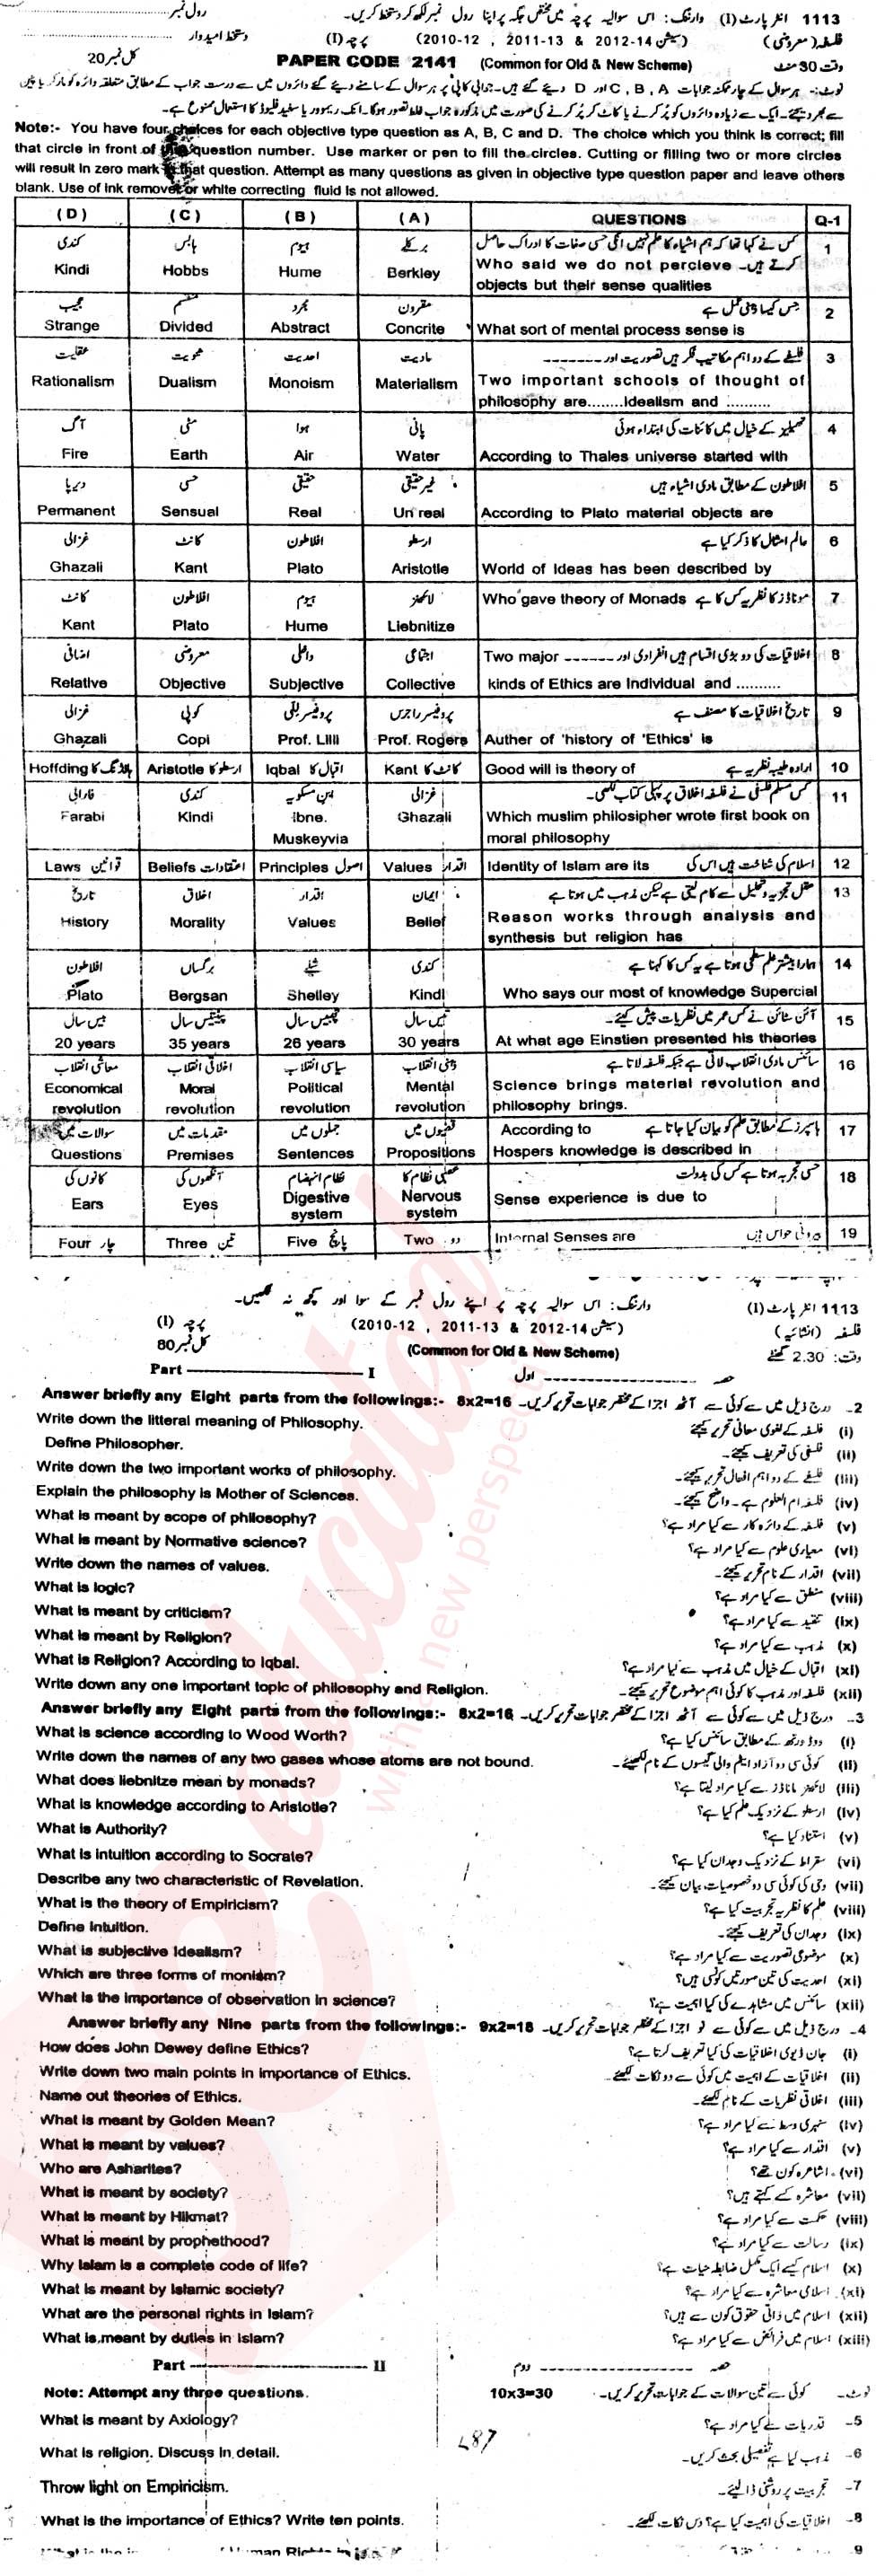 1113 انٹر پارٹ (I) وارننگ: اس سوالیہ پرچہ میں مختص جگہ پر اپنا رول نمبر لکھ کر دستخط کریں۔ رول نمبر
فلسفہ (معروضی) (سیشن 2012-14 & 2011-13 , 2010-12) پرچہ (I) دستخط امیدوار
وقت 30 منٹ (Common for Old & New Scheme) PAPER CODE 2141 کل نمبر 20
نوٹ:- ہر سوال کے چار ممکنہ جوابات A, B, C اور D دیئے گئے ہیں۔ جوابی کاپی پر ہر سوال کے سامنے دیئے گئے دائروں میں سے درست جواب کے مطابق متعلقہ دائرہ کو مارکر یا پین
سے بھر دیجئے۔ ایک سے زیادہ دائروں کو پُر کرنے یا کاٹ کر پُر کرنے کی صورت میں مذکورہ جواب غلط تصور ہوگا۔ انک ریمور یا سفید فلیوڈ کا استعمال ممنوع ہے۔
Note:- You have four choices for each objective type question as A, B, C and D. The choice which you think is correct; fill
that circle in front of that question number. Use marker or pen to fill the circles. Cutting or filling two or more circles
will result in zero mark in that question. Attempt as many questions as given in objective type question paper and leave others
blank. Use of ink remover or white correcting fluid is not allowed.
(D) (C) (B) (A) QUESTIONS Q-1
کندی ہابس ہیوم برکلے کس نے کہا تھا کہ ہم اشیاء کا علم نہیں انکی حسی صفات کا ادراک حاصل 1
Kindi Hobbs Hume Berkley Who said we do not percieve کرتے ہیں۔
objects but their sense qualities
عجیب منقسم مجرد مقرون حس کیسا ذہنی عمل ہے 2
Strange Divided Abstract Concrite What sort of mental process sense is
عقلیت ثنویت احدیت مادیت فلسفے کے دو اہم مکاتیب فکر ہیں تصوریت اور ------- 3
Rationalism Dualism Monoism Materialism Two important schools of thought of
philosophy are........Idealism and ..........
آگ مٹی ہوا پانی تھیلیز کے خیال میں کائنات کی ابتداء ہوئی 4
Fire Earth Air Water According to Thales universe started with
دیرپا حسی حقیقی غیر حقیقی افلاطون کے مطابق مادی اشیاء ہیں 5
Permanent Sensual Real Un real According to Plato material objects are
غزالی کانٹ افلاطون ارسطو عالم امثال کا ذکر کیا ہے 6
Ghazali Kant Plato Aristotle World of Ideas has been described by
کانٹ افلاطون ہیوم لائبنز Who gave theory of Monads موناڈز کا نظریہ کس کا ہے 7
Kant Plato Hume Liebnitize
اضافی معروضی داخلی اجتماعی Two major اخلاقیات کی دو بڑی اقسام ہیں انفرادی اور ------- 8
Relative Objective Subjective Collective kinds of Ethics are Individual and ..........
غزالی کوپی پروفیسر للی پروفیسر راجرس تاریخ اخلاقیات کا مصنف ہے 9
Ghazali Copi Prof. Lilli Prof. Rogers Auther of 'history of 'Ethics' is
Hoffding ہافڈنگ کا Aristotle ارسطو کا Iqbal اقبال کا Kant کانٹ کا Good will is theory of ارادہ طیبہ نظریہ ہے 10
فارابی کندی ابن مسکویہ غزالی کس مسلم فلسفی نے فلسفہ اخلاق پر پہلی کتاب لکھی۔ 11
Farabi Kindi Ibne. Ghazali Which muslim philosipher wrote first book on
Muskeyvia moral philosophy
Laws قوانین Beliefs اعتقادات Principles اصول Values اقدار Identity of Islam are its اسلام کی شناخت ہیں اس کی 12
تاریخ اخلاق اقدار ایمان عقل تجزیہ و تحلیل سے کام لیتی ہے لیکن مذہب میں ہوتا ہے 13
History Morality Values Belief Reason works through analysis and
synthesis but religion has
افلاطون برگساں شیلے کندی ہمارا بیشتر علم سطحی ہوتا ہے یہ کس کا کہنا ہے 14
Plato Bergsan Shelley Kindi Who says our most of knowledge Supercial
بیس سال پینتیس سال چھبیس سال تیس سال آئن سٹائن نے کس عمر میں نظریات پیش کیئے۔ 15
20 years 35 years 26 years 30 years At what age Einstien presented his theories
معاشی انقلاب اخلاقی انقلاب سیاسی انقلاب ذہنی انقلاب سائنس مادی انقلاب لاتی ہے جبکہ فلسفہ لاتا ہے 16
Economical Moral Political Mental Science brings material revolution and
revolution revolution revolution revolution philosophy brings.
سوالات میں مقدمات میں جملوں میں قضیوں میں According to ہاسپرز کے مطابق علم کو بیان کیا جاتا ہے 17
Questions Premises Sentences Propositions Hospers knowledge is described in
کانوں کی آنکھوں کی نظام انہضام عصبی نظام کا حسی تجربہ ہوتا ہے کس کی بدولت 18
Ears Eyes Digestive Nervous Sense experience is due to
system system
Four چار Three تین Five پانچ Two دو Internal Senses are بیرونی حواس ہیں 19
1113 انٹر پارٹ (I) وارننگ: اس سوالیہ پرچہ پر اپنے رول نمبر کے سوا اور کچھ نہ لکھیں۔
فلسفہ (انشائیہ) (سیشن 2012-14 & 2011-13 , 2010-12) پرچہ (I)
وقت: 2.30 گھنٹے (Common for Old & New Scheme) کل نمبر 80
Part ------------------ I حصہ ------------------ اول
Answer briefly any Eight parts from the followings:- 8x2=16 2۔ درج ذیل میں سے کوئی سے آٹھ اجزا کے مختصر جوابات تحریر کریں۔
Write down the litteral meaning of Philosophy. (i) فلسفہ کے لغوی معانی تحریر کیجئے
Define Philosopher. (ii) فلسفی کی تعریف کیجئے۔
Write down the two important works of philosophy. (iii) فلسفے کے دو اہم افعال تحریر کیجئے۔
Explain the philosophy is Mother of Sciences. (iv) فلسفہ ام العلوم ہے۔ واضح کیجئے۔
What is meant by scope of philosophy? (v) فلسفہ کے دائرہ کار سے کیا مراد ہے؟
What is meant by Normative science? (vi) معیاری علوم سے کیا مراد ہے؟
Write down the names of values. (vii) اقدار کے نام تحریر کیجئے۔
What is logic? (viii) منطق سے کیا مراد ہے؟
What is meant by criticism? (ix) تنقید سے کیا مراد ہے؟
What is meant by Religion? (x) مذہب سے کیا مراد ہے؟
What is Religion? According to Iqbal. (xi) اقبال کے خیال میں مذہب سے کیا مراد ہے؟
Write down any one important topic of philosophy and Religion. (xii) فلسفہ اور مذہب کا کوئی اہم موضوع تحریر کیجئے۔
Answer briefly any Eight parts from the followings:- 8x2=16 3۔ درج ذیل میں سے کوئی سے آٹھ اجزا کے مختصر جوابات تحریر کریں۔
What is science according to Wood Worth? (i) ووڈ ورتھ کے مطابق سائنس کیا ہے؟
Write down the names of any two gases whose atoms are not bound. (ii) کوئی سی دو آزاد ایٹم والی گیسوں کے نام لکھیئے۔
What does liebnitze mean by monads? (iii) لائبنز مانادز سے کیا مراد لیتا ہے؟
What is knowledge according to Aristotle? (iv) ارسطو کے نزدیک علم کیا ہے؟
What is Authority? (v) استناد کیا ہے؟
What is intuition according to Socrate? (vi) سقراط کے نزدیک وجدان کیا ہے؟
Describe any two characteristic of Revelation. (vii) وحی کی کوئی سی دو خصوصیات بیان کیجئے۔
What is the theory of Empiricism? (viii) علم کا نظریہ تجربیت کیا ہے؟
Define Intuition. (ix) وجدان کی تعریف کیجئے۔
What is subjective Idealism? (x) موضوعی تصوریت سے کیا مراد ہے؟
Which are three forms of monism? (xi) احدیت کی تین صورتیں کونسی ہیں؟
What is the importance of observation in science? (xii) سائنس میں مشاہدے کی کیا اہمیت ہے؟
Answer briefly any Nine parts from the followings:- 9x2=18 4۔ درج ذیل میں سے کوئی سے نو اجزا کے مختصر جوابات تحریر کریں۔
How does John Dewey define Ethics? (i) جان ڈیوی اخلاقیات کی کیا تعریف کرتا ہے؟
Write down two main points in importance of Ethics. (ii) اخلاقیات کے اہمیت میں کوئی سے دو نکات لکھئے۔
Name out theories of Ethics. (iii) اخلاقی نظریات کے نام لکھئے۔
What is meant by Golden Mean? (iv) سنہری وسط سے کیا مراد ہے؟
What is meant by values? (v) اقدار سے کیا مراد ہے؟
Who are Asharites? (vi) اشاعرہ کون تھے؟
What is meant by society? (vii) معاشرہ کسے کہتے ہیں؟
What is meant by Hikmat? (viii) حکمت سے کیا مراد ہے؟
What is meant by prophethood? (ix) رسالت سے کیا مراد ہے؟
Why Islam is a complete code of life? (x) اسلام کیسے ایک مکمل ضابطہ حیات ہے؟
What is meant by Islamic society? (xi) اسلامی معاشرہ سے کیا مراد ہے؟
What are the personal rights in Islam? (xii) اسلام میں ذاتی حقوق کون سے ہیں؟
What is meant by duties in Islam? (xiii) اسلام میں فرائض سے کیا مراد ہے؟
Part ------------------ II حصہ ------------------ دوم
Note: Attempt any three questions. 10x3=30 نوٹ۔ کوئی سے تین سوالات کے جوابات تحریر کریں۔
What is meant by Axiology? 5- قدریات سے کیا مراد ہے؟
What is religion. Discuss in detail. 6- مذہب کیا ہے تفصیلی بحث کریں۔
Throw light on Empiricism. 7- تجربیت پر روشنی ڈالیئے۔
What is the importance of Ethics? Write ten points. 8- اخلاقیات کی اہمیت کیا ہے؟ دس نکات لکھئے۔
9
educated
with a new perspective